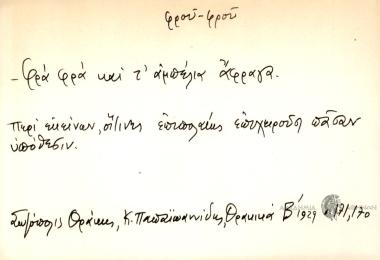 φρού-φρού
– Φρά φρά και τ' αμπέλια άφραγα.
Περί εκείνων, οίτινες επιπολαίως επιχειρούσι πάσαν
υπόθεσιν.
Σωζόπολις Θράκης, Κ. Παπαϊωαννίδης, Θρακικά Β' 1929 σ. 171, 170